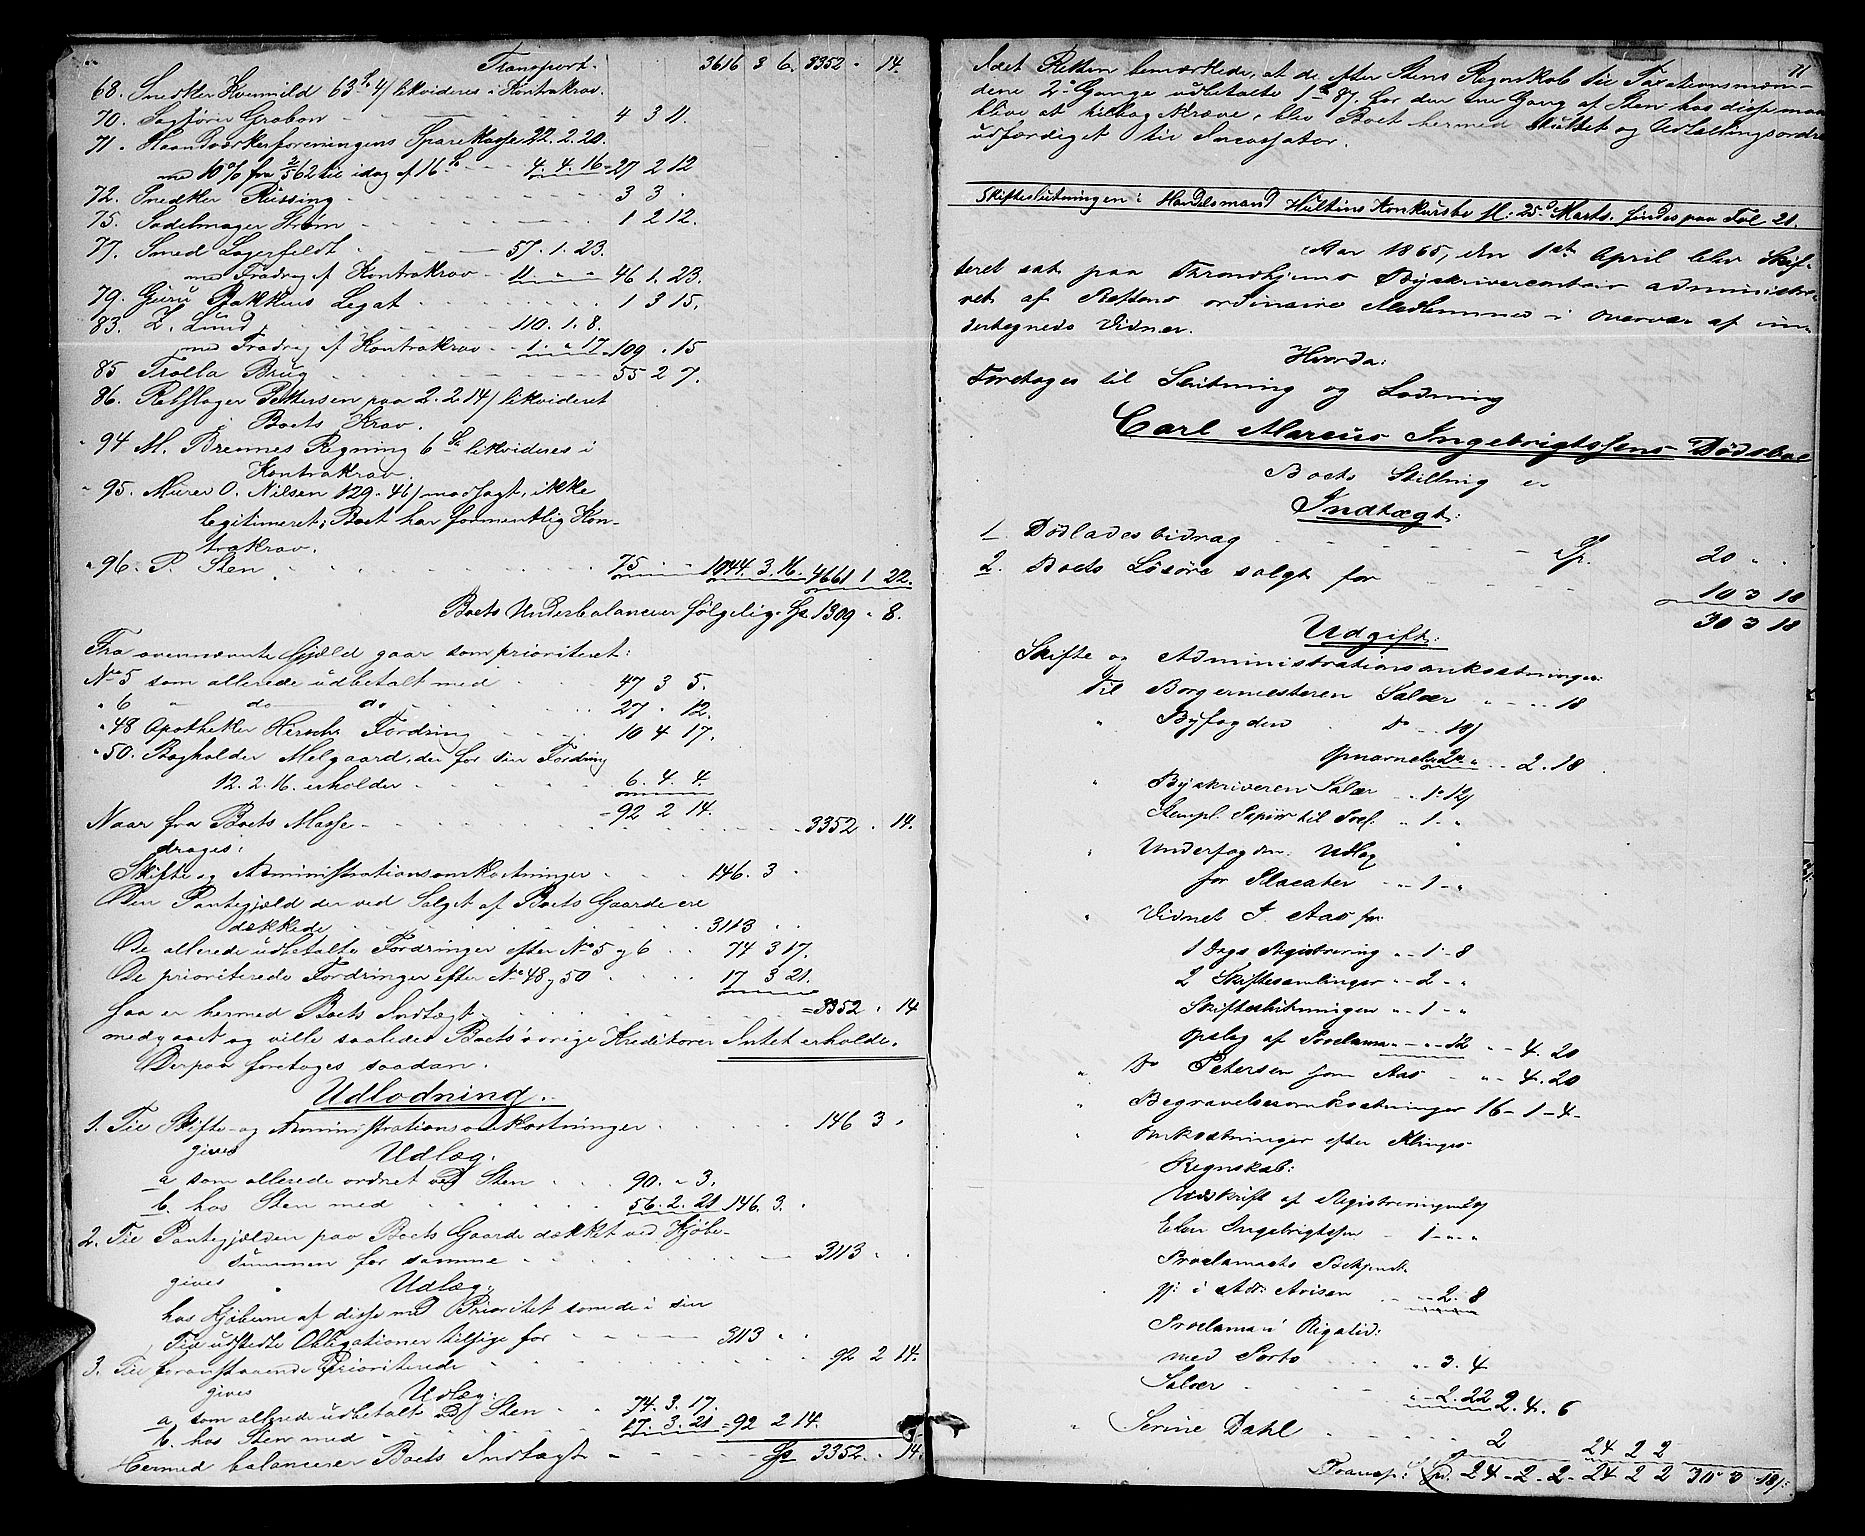 Transport. 3616 3 6. 3352 " 14.
68. Snedker Hvenmild 63 4/ likvideres i Kontrakrav.
70. Sagfører Grabow 4 3 11.
71. Haandværkerforeningens Sparekasse 22. 2. 20.
med 10% fra 2/5 62 til idag af 16 4. 4. 16 = 27 2 12
72. Snedker Rüssing 3 3 .
75. Sadelmager Strøm 1 2 12.
77. Smed Lagerfeldt 57. 1. 23.
med Fradrag af Kontrakrav 11 " " 46 1. 23.
79. Guru Bakkens Legat 1 3 15.
83. L. Lund 110. 1. 8.
med Fradrag af Kontrakrav 1. " 17 109 " 15
85 Trolla Brug 55 2 7.
86. Rebslager Pettersen paa 2. 2 14/ likvideret
i Boets Krav.
" 94 M. Brennes Regning 6 likvideres i
Kontrakrav.
" 95. Murer O. Nilsen 129. 46/ modsagt, ikke
legitimeret; Boet har formentlig Kon-
trakrav.
" 96. P. Sten 75 " " 1044. 3. 16. 4661 1 22.
Boets Underbalance er følgelig Sp 1309 " 8.
Fra ovennævnte Gjæld gaar som prioriteret:
No 5 som allerede udbetalt med 47 3 5.
" 6 " do do 27 " 12.
" 48 Apotheker Hirschs Fordring 10 4 17.
" 50. Bogholder Melgaard, der for sin Fordring
12. 2. 16. erholder 6. 4. 4.
= 92 2 14.
Naar fra Boets Masse 3352 " 14.
drages:
Skifte og Administrationsomkostninger 146. 3 .
Den Pantegjæld der ved Salget af Boets Gaarde ere
dækkede 3113 . .
De allerede udbetalte Fordringer efter No 5 og 6 74 3 17.
De prioriterede Fordringer efter No 48 og 50 17 3 21.
= 3352 " 14
saa er hermed Boets Indtægt
medgaaet og ville saaledes Boets øvrige Kreditorer Intet erholde.
Derpaa foretoges saadan.
Udlodning.
1. Til Skifte- og Administrationsomkostninger 146 3 .
gives Udlæg.
a som allerede ordnet ved Sten 90. " 3.
b. hos Sten med 56. 2. 21 146. 3. .
2. Til Pantegjælden paa Boets Gaarde dækket ved Kjøbe-
summen for samme 3113 . .
gives Udlæg:
hos Kjøberne af disse med Prioritet som de i sin
Tid udstedte Obligationer tilsige for 3113 . .
3. Til foranstaaende Prioriterede 92 2 14.
gives Udlæg:
a. som allerede udbetalt ved Sten 74. 3. 17.
b. hos Sten med 17. 3. 21 = 92 2 14.
Hermed balancerer Boets Indtægt Sp 3352 " 14.
11
Idet Retten bemærkede, at de efter Stens Regnskab til Taxationsmæn-
dene 2 Gange udbetalte 1 87. for den ene Gang af Sten hos disse maa
blive at tilbagekræve, blev Boet hermed sluttet og Udlodningsordre
udfærdiget til Incassator.
Skifteslutningen i Handelsmand Hultins Konkursbo fl: 25d Marts. findes paa Fol 21.
Aar 1865, den 1ste April blev Skif-
teret sat paa Throndhjems Byskrivercontoir administre-
ret af Rettens ordinaire Medlemmer i Overvær af un-
dertegnede Vidner.
Hvorda:
Foretoges til Slutning og Lodning
Carl Marcus Ingebrigtssens Dødsboe
Boets Stilling er
Indtægt:
1. Dødladesbidrag Sp. 20 " .
2. Boets Løsøre solgt for 10 3 18
30 3 18
Udgift:
Skifte og Administrationsomkostninger:
Til Borgermesteren Salær " .. 18
" Byfogden do .. 18/
2. 18
" Byskriveren Salær .. 1. 12/
Stempl. Papiir til .. 1 - "
" Underfogden. Udlæg
for Placater .. 1 - "
" Vidnet J. Aas for
1 Dags Registrering .. 1. 8
2 Skiftesamlinger .. 2 - "
Skifteslutningen .. 1 - "
Opslag af Proclama .. 12 .. 4. 20
" do Petersen som Aas .. 4. 20
" Begravelsesomkostninger 16 - 1 - 4 -
" Omkostninger efter Klinges
Regnskab:
Udskrift af Registreringen 20/
Elen Ingebrigtssen 1 - " "
Proclamaets Bekjendt-
gj: i Adr: Avisen .. 2. 8
Proclama i Rigstid:
med Porto .. 3. 4
Salær .. 2. 22 2. 4. 6
" Serine Dahl 2 24 2 2
Transp: Sp. 24 - 2 - 2 - 24 2 2 30 3 18/: